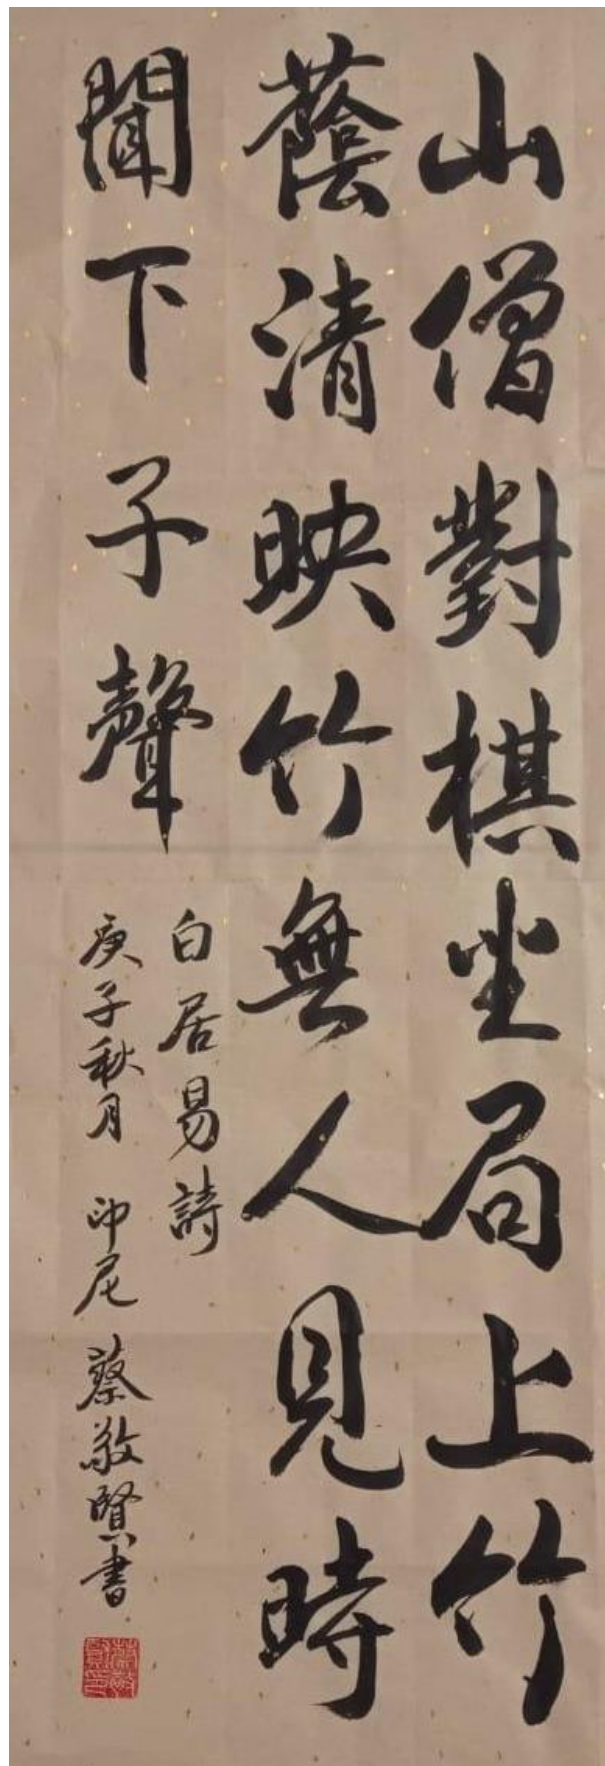 山僧對棋坐局上竹
蔭清映竹無人見時
聞下子聲
白居易詩
庚子秋月 印尼 蔡敬賢書